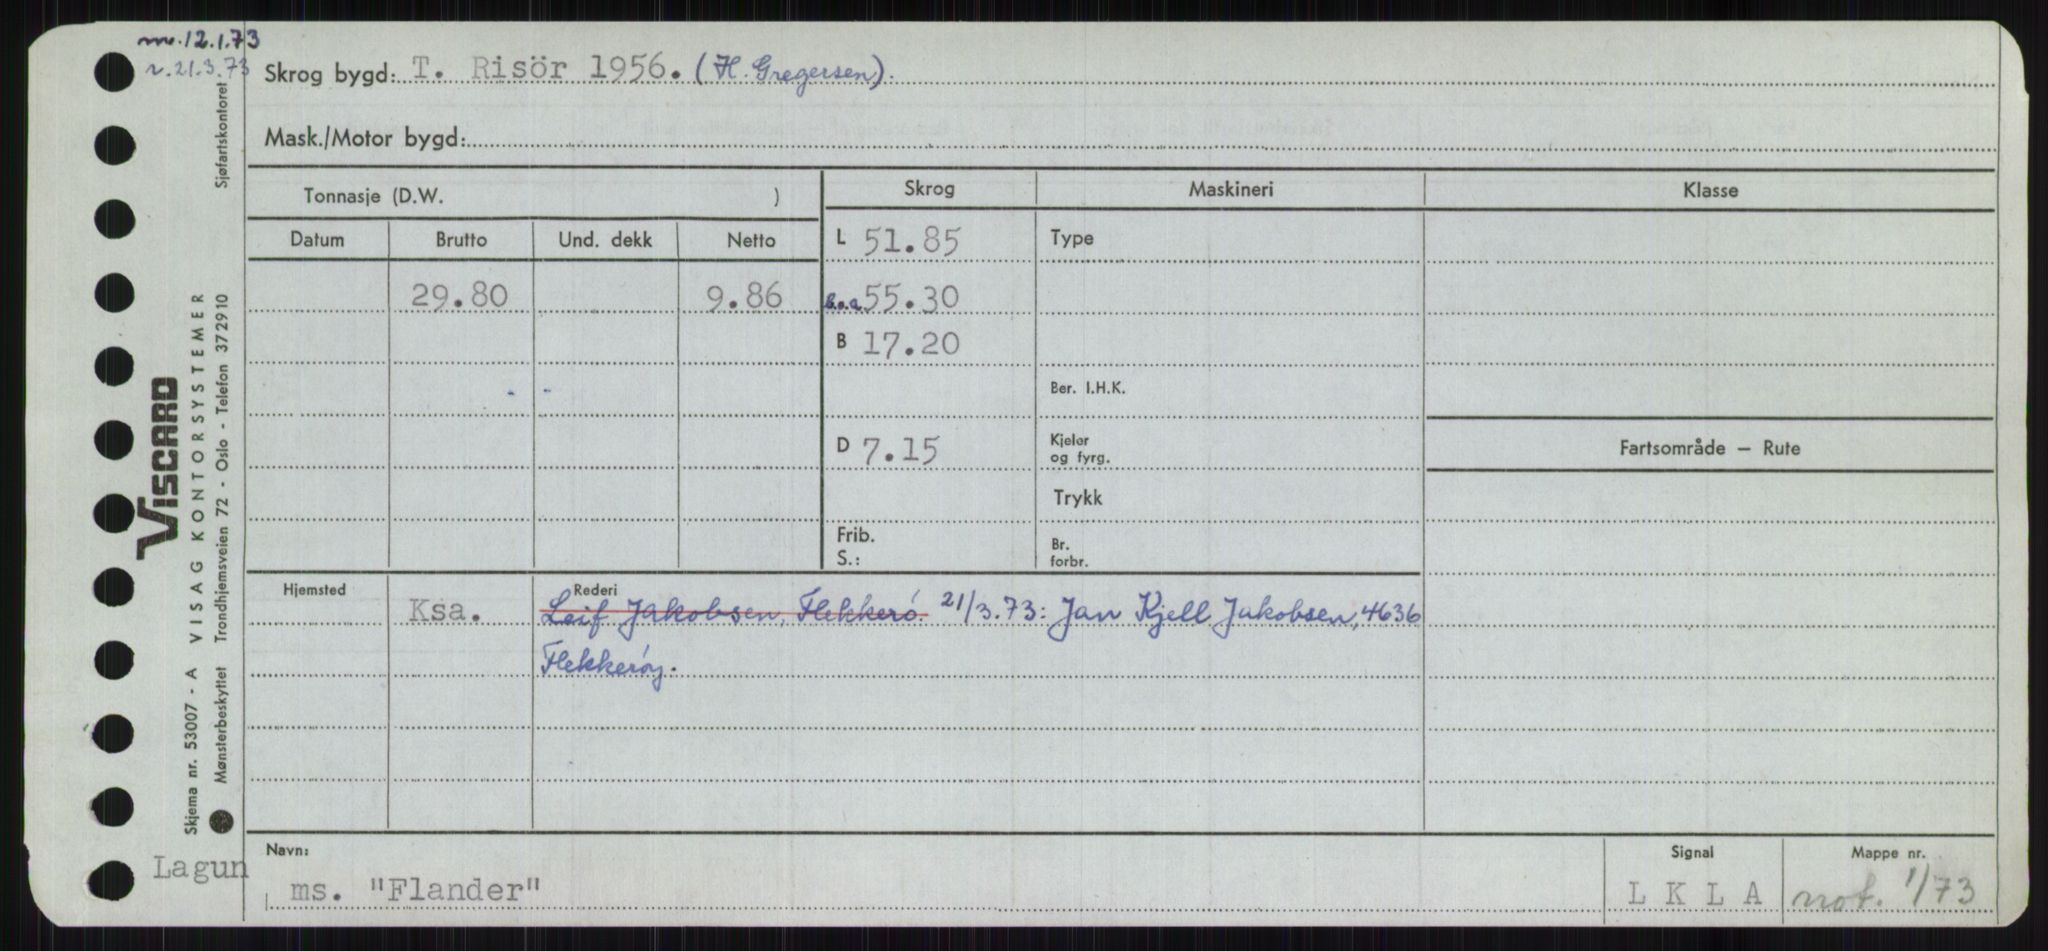 m. 12.1.73
r. 21.3.73
Skrog bygd: T. Risör 1956. (H. Gregersen).
Mask./Motor bygd:
Tonnasje (D.W. )
Skrog
Maskineri
Klasse
Datum Brutto Und. dekk Netto
L 51.85
Type
29.80 9.86
l.o.a 55.30
B 17.20
Ber. I.H.K.
D 7.15
Kjeler
og fyrg.
Fartsområde — Rute
Trykk
Frib.
S.:
Br.
forbr.
Hjemsted
Ksa.
Rederi
Leif Jakobsen, Flekkerö. 21/3.73: Jan Kjell Jakobsen, 4636
Flekkerøy.
Navn:
Lagun
ms. "Flander"
Signal
L K L A
Mappe nr.
not. 1/73
Skjema nr. 53007 - A VISAG KONTORSYSTEMER
VISCARD
Mønsterbeskyttet Trondhjemsveien 72 - Oslo - Telefon 372910
Sjøfartskontoret